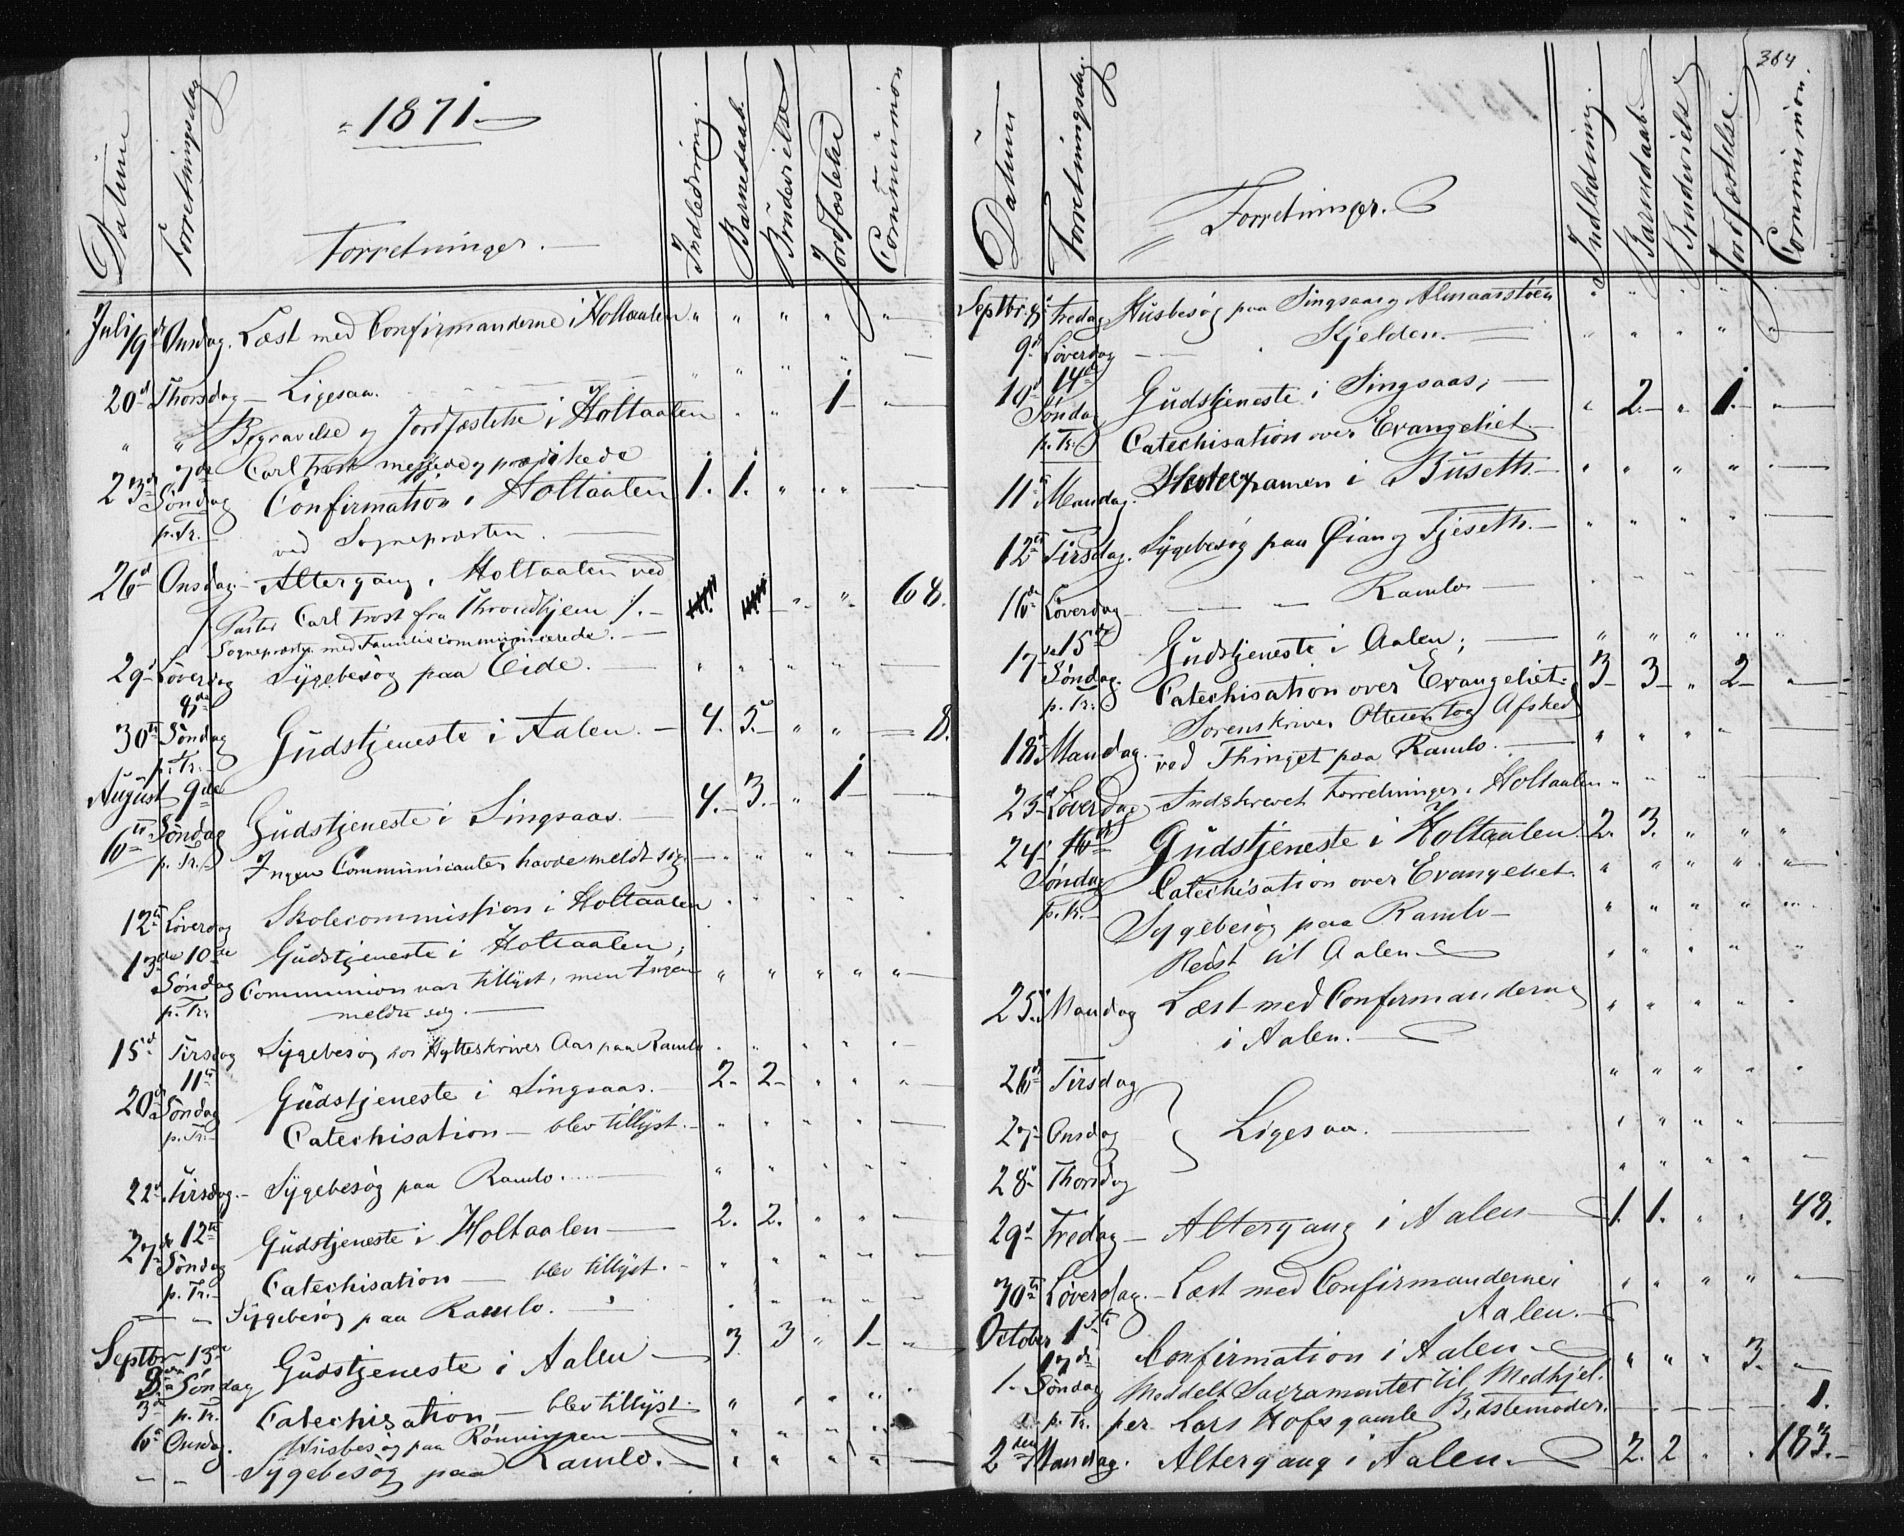 1871.
Datum Forretningsdag Forretninger. Indledning. Barnedaab. Brudevielse Jordfæstelse Communion
Juli 19d Onsdag. Læst med Confirmanderne i Holtaalen " " " " "
20d Thorsdag – Ligesaa. " " " " –
" " Begravelse og Jordfæstelse i Holtaalen " " 1 –
23d 7de Carl Trost messede og prædikede
Søndag Confirmation i Holtaalen 1. 1. " " " –
p. Tr. ved Sognepræsten.
26d Onsdag – Altergang i Holtaalen ved
Pastor Carl Trost fra Throndhjem /. – " " 68.
Sognepræsten med Familie communicerede. –
29d Løverdag Sygebesøg paa Eide. – " " " " –
8de
30te Søndag Gudstjeneste i Aalen. – 4. 5. " " – 8.
p. Tr.
August 9de
6te Søndag Gudstjeneste i Singsaas. 4. 3. " 1 –
p. Tr. Ingen Communicanter havde meldt sig. – " " " " –
12te Løverdag Skolecommission i Holtaalen " " " " "
13de 10de Gudstjeneste i Holtaalen;
Søndag Communion var tillyst, men Ingen " " " " " –
p. Tr. meldte sig. –
15d Tirsdag Sygebesøg hos Hytteskriver Aas paa Ramlo " " " " –
11te
20d Søndag Gudstjeneste i Singsaas. 2. 2. " " " –
p. Tr. – Catechisation – blev tillyst. – " " " " –
22d Tirsdag. – Sygebesøg paa Ramlo. – " " " " "
12te
27de Søndag Gudstjeneste i Holtaalen – 2. 2. " " –
p. Tr. – Catechisation – blev tillyst. – " " " " –
– – Sygebesøg paa Ramlo. – " " " " –
Septbr 13de
3de Søndag Gudstjeneste i Aalen – 3. 3 " 1 – –
p. Tr. Catechisation – blev tillyst. " " " "
6te Onsdag. Husbesøg paa Rønningen – " " " "
– – Sygebesøg paa Ramlo. – " " " " –
364
Datum Forretningsdag. Forretninger. Indledning. Barnedaab. Brudevielse Jordfæstelse. Communion.
Septbr. 8de Fredag Husbesøg paa Singsaas og Almaasstøen " " " " "
9de Løverdag – – Kjelden. – " " " " –
10d 14de Gudstjeneste i Singsaas; – " 2. – " 1. – "
Søndag
p. Tr. Catechisation over Evangeliet. –
11te Mandag. Skoleexamen i Buseth. – " " " " –
12te Tirsdag. Sygebesøg paa Øian og Fjeseth. – " " " " –
16de Løverdag – – Ramlo – " " " " –
17de 15de Gudstjeneste i Aalen; – " " " " "
Søndag. Catechisation over Evangeliet. 3 – 3 – " 2 – –
p. Tr.
18de Mandag. – Sorenskriver Ottesen tog Afsked
ved Thinget paa Ramlo. – " " " " –
23d Løverdag Indskrevet Forretninger i Holtaalen " " " –
24de 16de Gudstjeneste i Holtaalen 2. 3. " " "
Søndag Catechisation over Evangeliet. " " " " –
p. Tr. – Sygebesøg paa Ramlo – " " " " "
Reist til Aalen – " " " " "
25de Mandag Læst med Confirmanderne " " " " "
i Aalen. –
26de Tirsdag " " " " "
27de Onsdag Ligesaa. – " " " " –
28de Thorsdag " " " " –
29de Fredag – Altergang i Aalen – 1. 1. " " 48.
30te Løverdag. – Læst med Confirmanderne i " " " " –
Aalen. –
October 1ste
17de Confirmation i Aalen – " " " 3. –
1. Søndag Meddelt Sacramentet til Medhjel-
p. Tr. per Lars Hofs gamle Bedstemoder. – 1.
2den Mandag. Altergang i Aalen. – 2. 2 " " 183. –